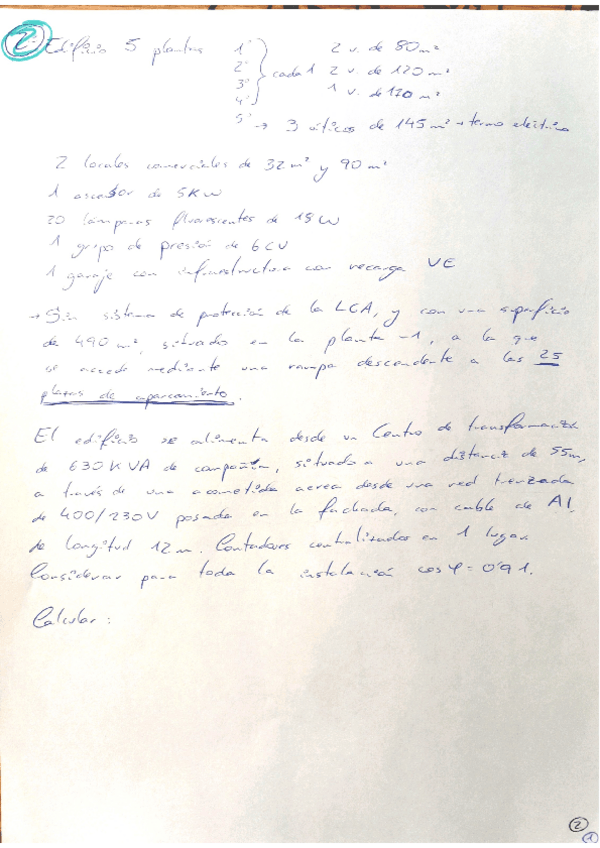 2 Edificio 5 plantas 1ª 2 v. de 80 m²
2ª cada 1 2 v. de 120 m²
3ª 1 v. de 110 m²
4ª
5ª → 3 áticos de 145 m² → termo eléctrico
2 locales comerciales de 32 m² y 90 m²
1 ascensor de 5 KW
20 lámparas fluorescentes de 15 W
1 grupo de presión de 6 CV
1 garaje con infraestructura con recarga VE
→ Sin sistema de protección de la LGA, y con una superficie
de 490 m², situado en la planta -1, a la que
se accede mediante una rampa descendente a las 25
plazas de aparcamiento.
El edificio se alimenta desde un Centro de transformación
de 630 KVA de compañía, situado a una distancia de 55 m,
a través de una acometida aerea desde una red trenzada
de 400/230V posada en la fachada, con cable de Al,
de longitud 12 m. Contadores centralizados en 1 lugar.
Considerar para toda la instalación cos φ = 0'91.
Calcular:
2
1